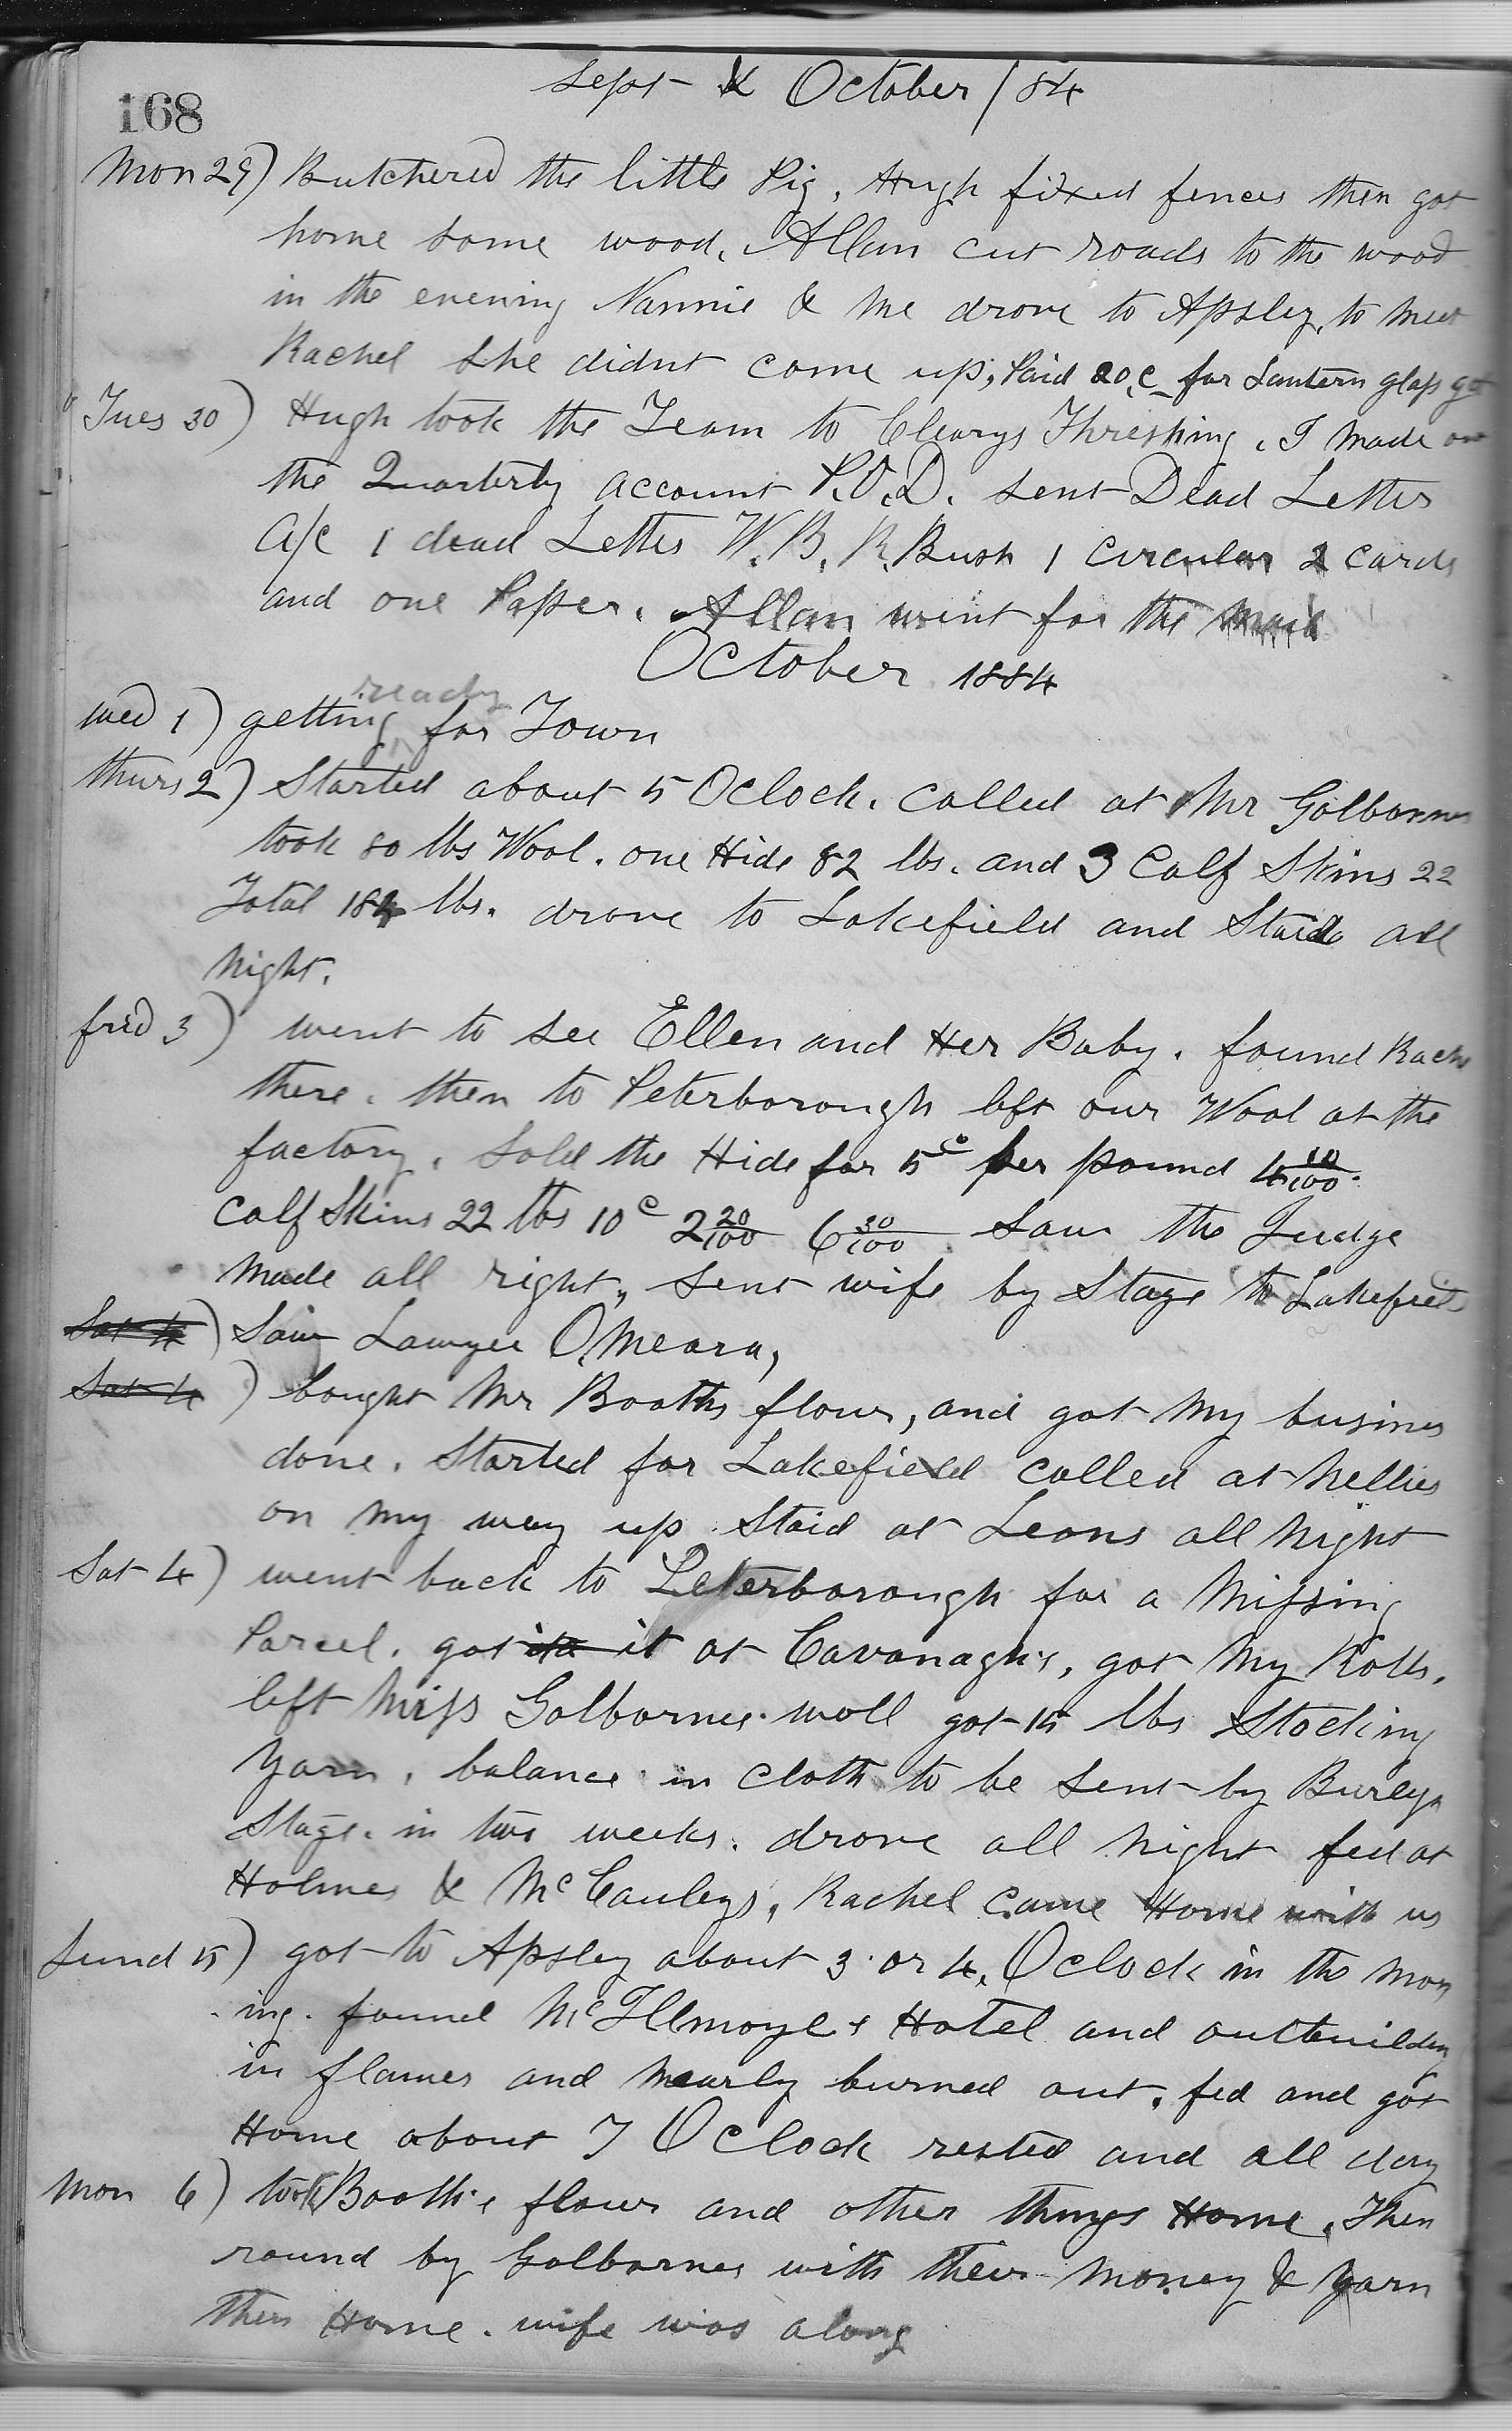 Sept & October / 84
168
Mon 29) Butchered the little Pig. Hugh fixed fences then got
home some wood. Allan cut roads to the wood
in the evening Nannie & me drove to Apsley, to meet
Rachel She didnt come up, Paid 20c for Lantern glass
Tues 30) Hugh took the Team to Clearys Threshing. I made
the Quarterly account P.O.D. sent Dead Letter
A/c 1 dead Letter W.B.R. Bush 1 circular 2 cards
and one Paper. Allan went for the mail
October 1884
Wed 1) getting ready for Town
Thurs 2) Started about 5 OClock. called at Mr Golbornes
took 80 lbs Wool. one Hide 82 lbs. and 3 Calf Skins 22
Total 184 lbs. drove to Lakefield and Staid all
Night.
frid 3) went to see Ellen and Her Baby. found
there. then to Peterborough left our Wool at the
factory. Sold the Hide for 5c per pound 4 10/100.
Calf Skins 22 lbs 10c 2 20/100 6 30/100. Saw the Judge
Made all right, sent wife by Stage to Lakefield
Sat 4) Saw Lawyer O,Meara,
Sat 4) bought Mr Booths flour, and got My busines
done. Started for Lakefield called at Nellies
on my way up Staid at Leons all Night
Sat 4) went back to Peterborough for a Missing
Parcel. got its it at Cavanagh's, got My Rolls.
left Miss Golbornes woll got 15 lbs Stocking
Yarn, balance in cloth to be sent by Bureys
Stage. in two weeks. drove all Night fed at
Holmes & McCauleys, Rachel came Home with us
Sund 5) got to Apsley about 3 or 4, OClock in the Morn
ing. found McIlmoyles Hotel and outbuilding
in flames and Nearly burned out. fed and got
Home about 7 OClock rested and all day
Mon 6) took Booth's flour and other things Home. Then
round by Golbornes with their Money & Yarn
then Home. wife was along